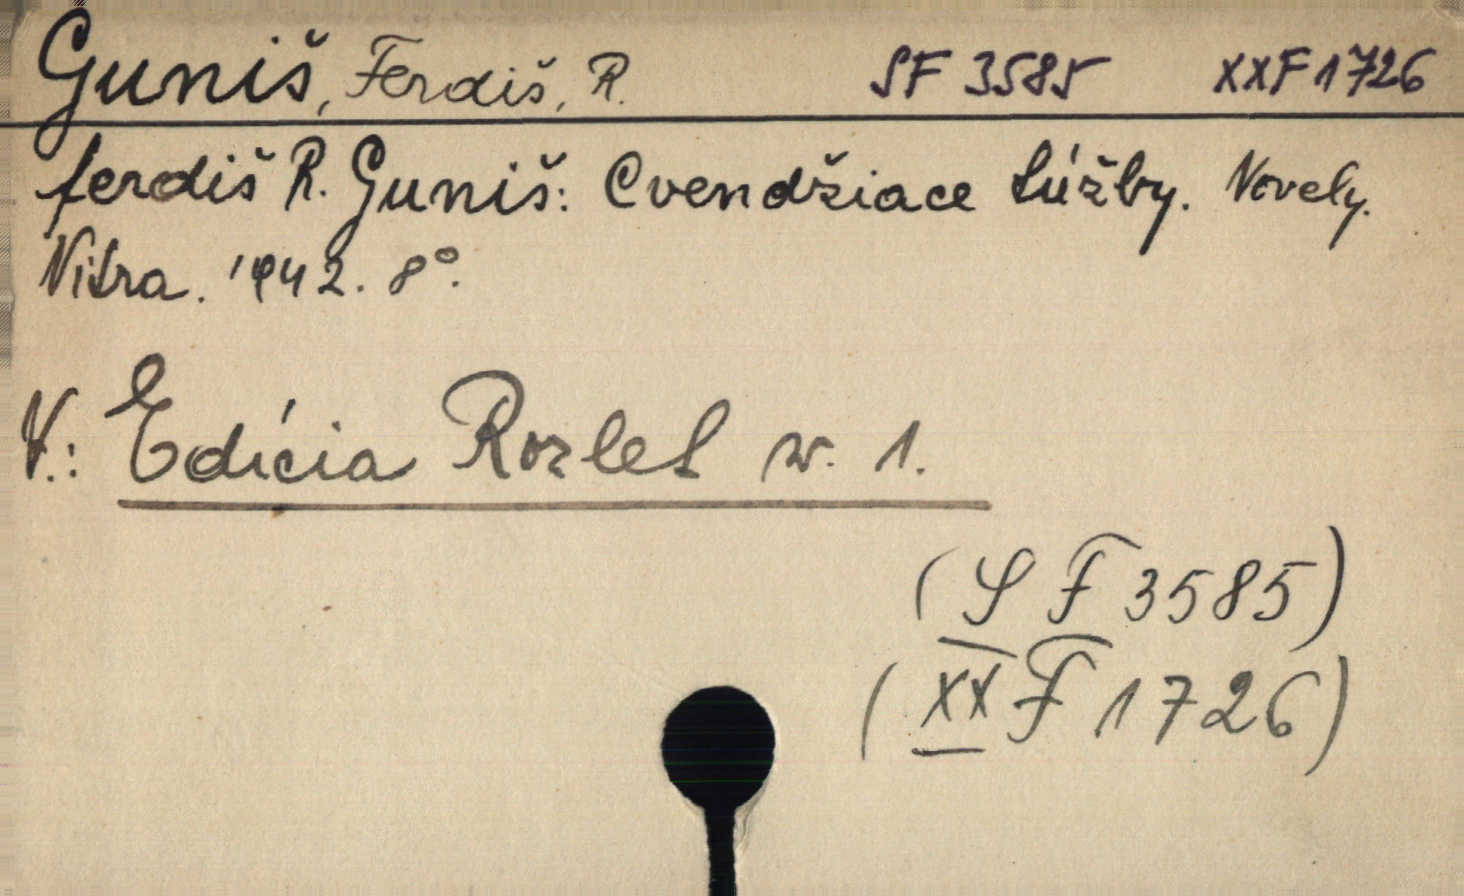 Guniš, Ferdiš, R. SF 3585 XXF 1726
Ferdiš R. Guniš: Cvendžiace túžby. Novely.
Nitra. 1942. 8°.
V.: Edícia Rozlet sv. 1.
(SF 3585)
(XXF 1726)